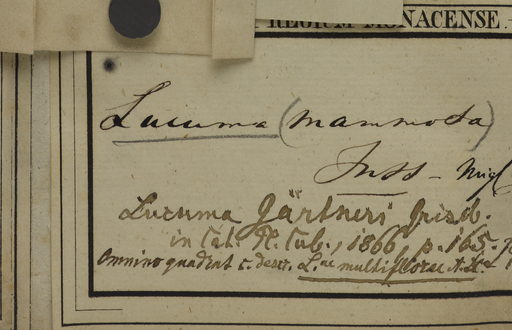 REGIUM MONACENSE.
Lucuma (mammosa)
Juss -
Lucuma Gärtneri Griseb.
in Cat. Pl. Cub., 1866, p. 165.
Omnino quadrat c. descr. L.ae multiflorae A. DC.